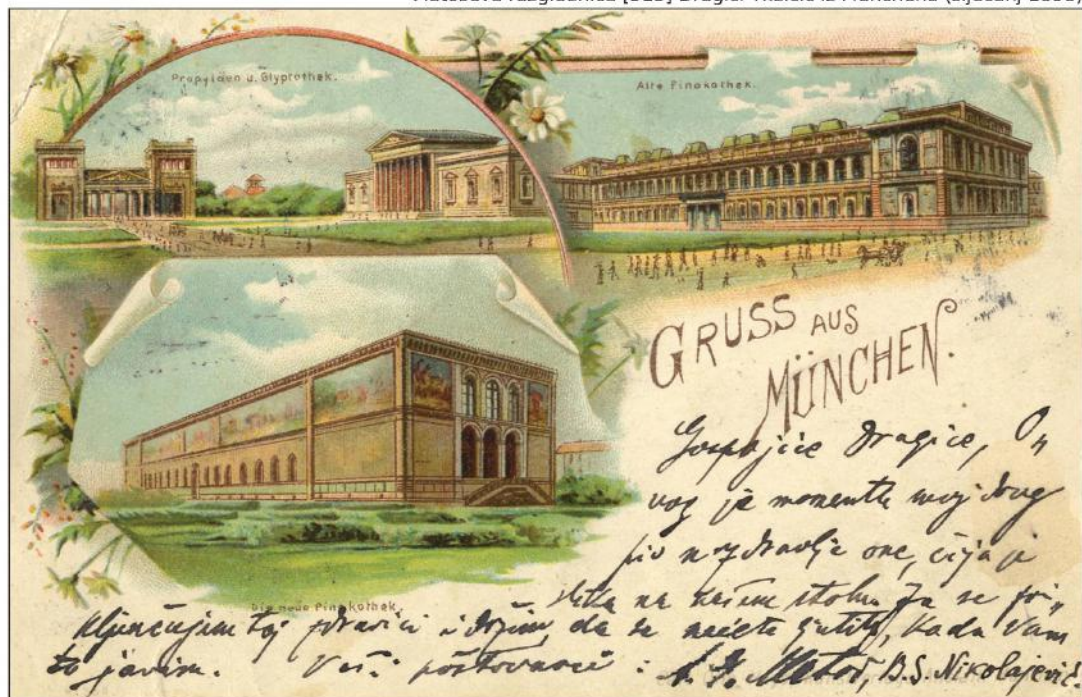 Propyläen u. Glyptothek.
Alte Pinakothek.
GRUSS AUS
MÜNCHEN.
Die neue Pinakothek.
Gospojice Dragice, O„
vog je momenta moj drug
pio u zdravlje one, čija je
slika na našem stolu. Ja se pri„
ključujem toj zdravici i držim, da se nećete ljutiti, kada Vam
to javim. Vaši poštovaoci: A. G. Matoš, B.S. Nikolajević.